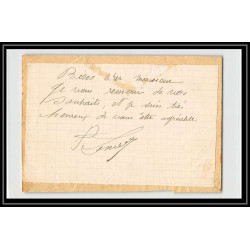 Bien cher monsieur
Je vous remercie de vos
souhaits, et je suis très
heureux de vous être agréable